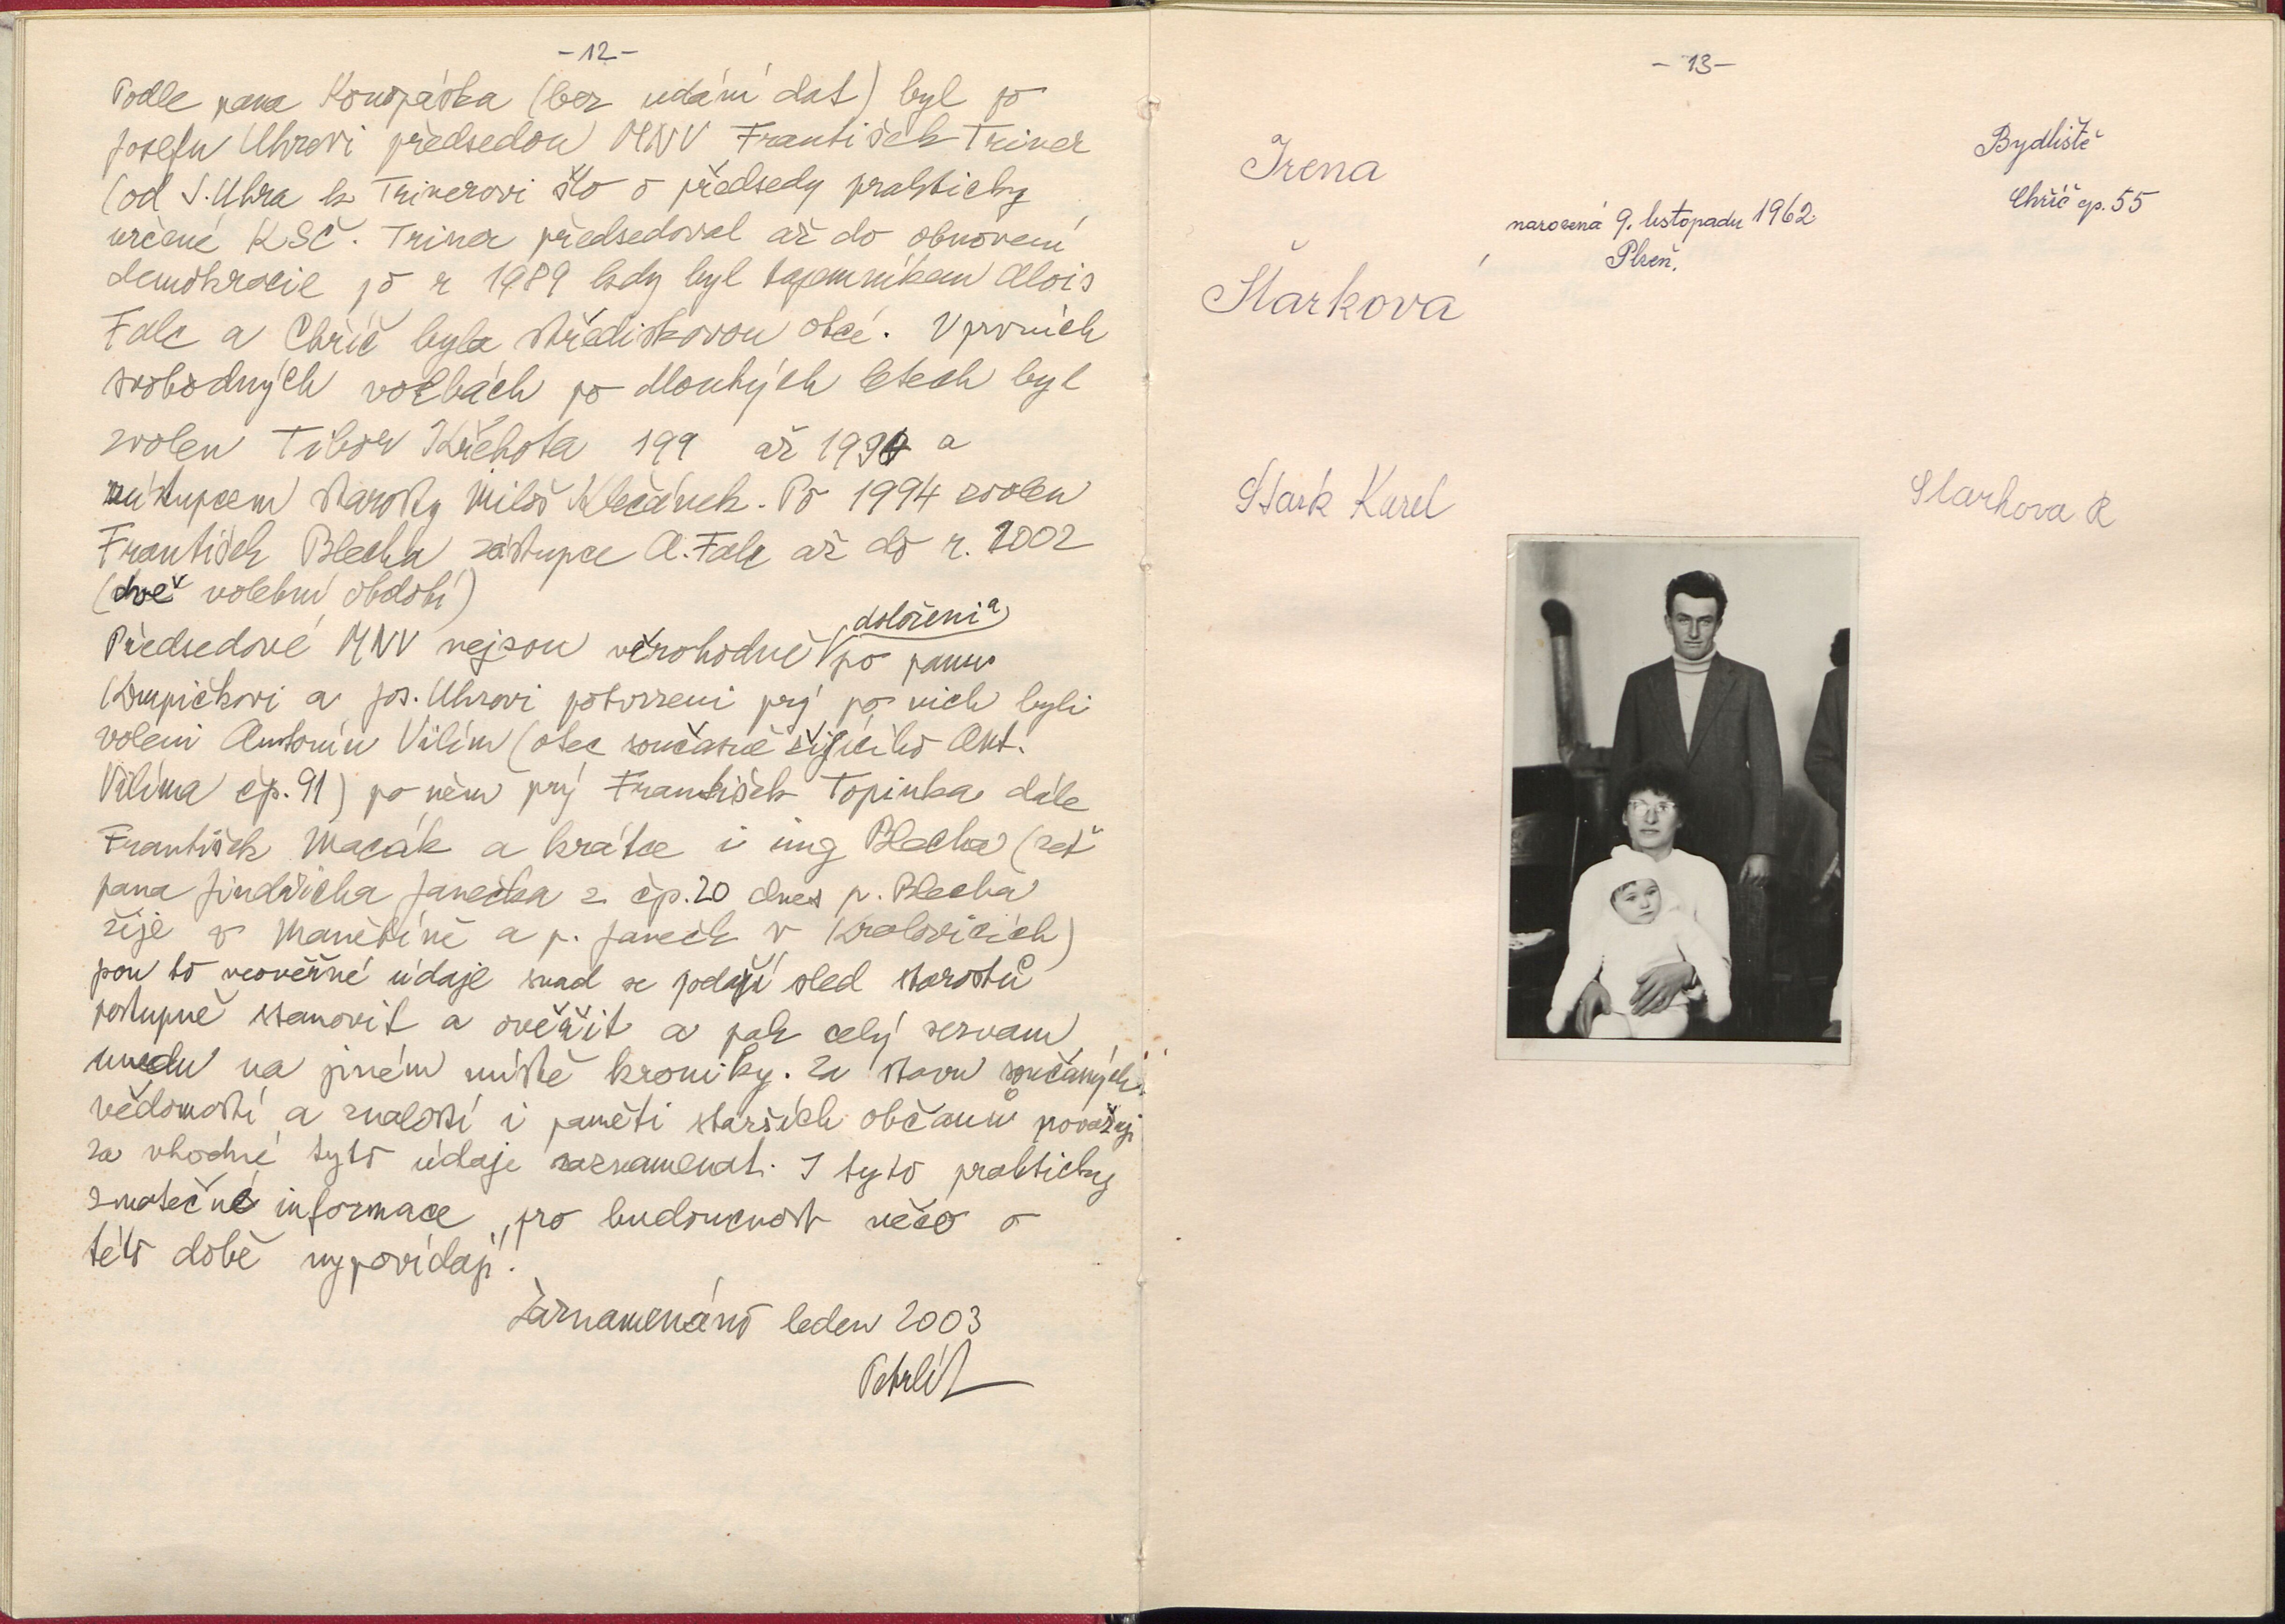 - 12 -
Podle pana Konopáska (bez udání dat) byl po
Josefu Uhrovi předsedou MNV František Triner
(od J. Uhra k Trinerovi šlo o předsedy prakticky
určené KSČ. Triner předsedoval až do obnovení
demokracie po r 1989 kdy byl tajemníkem Alois
Falc a Chříč byla střediskovou obcí. V prvních
svobodných volbách po dlouhých letech byl
zvolen Tibor Křehota 199 až 199 a
zástupcem starosty Miloš Klečánek. Po 1994 zvolen
František Blecha zástupce A. Falc až do r. 2002
(dvě volební období)
doloženi a
Předsedové MNV nejsou věrohodně po panu
Krupičkovi a Jos. Uhrovi potvrzeni prý po nich byli
voleni Antonín Vilím (otec současně žijícího Ant.
Vilíma čp. 91) po něm prý František Topinka dále
František Macák a krátce i ing Blecha (zeť
pana Jindřicha Janečka z čp. 20 dnes p. Blecha
žije v Manětíně a p. Janeček v Kralovicích)
jsou to neověřné údaje snad se podaří sled starostů
postupně stanovit a ověřit a pak celý seznam
uvedu na jiném místě kroniky. Za stavu současných
vědomostí a znalostí i paměti starších občanů považuji
za vhodné tyto údaje zaznamenat. I tyto prakticky
zmatečné informace, pro budoucnost něco o
této době vypovídají.
Zaznamenáno leden 2003
- 13 -
Irena
Bydliště
Chříč čp. 55
narozená 9. listopadu 1962
Plzeň.
Štarková
Štark Karel
Starkova R